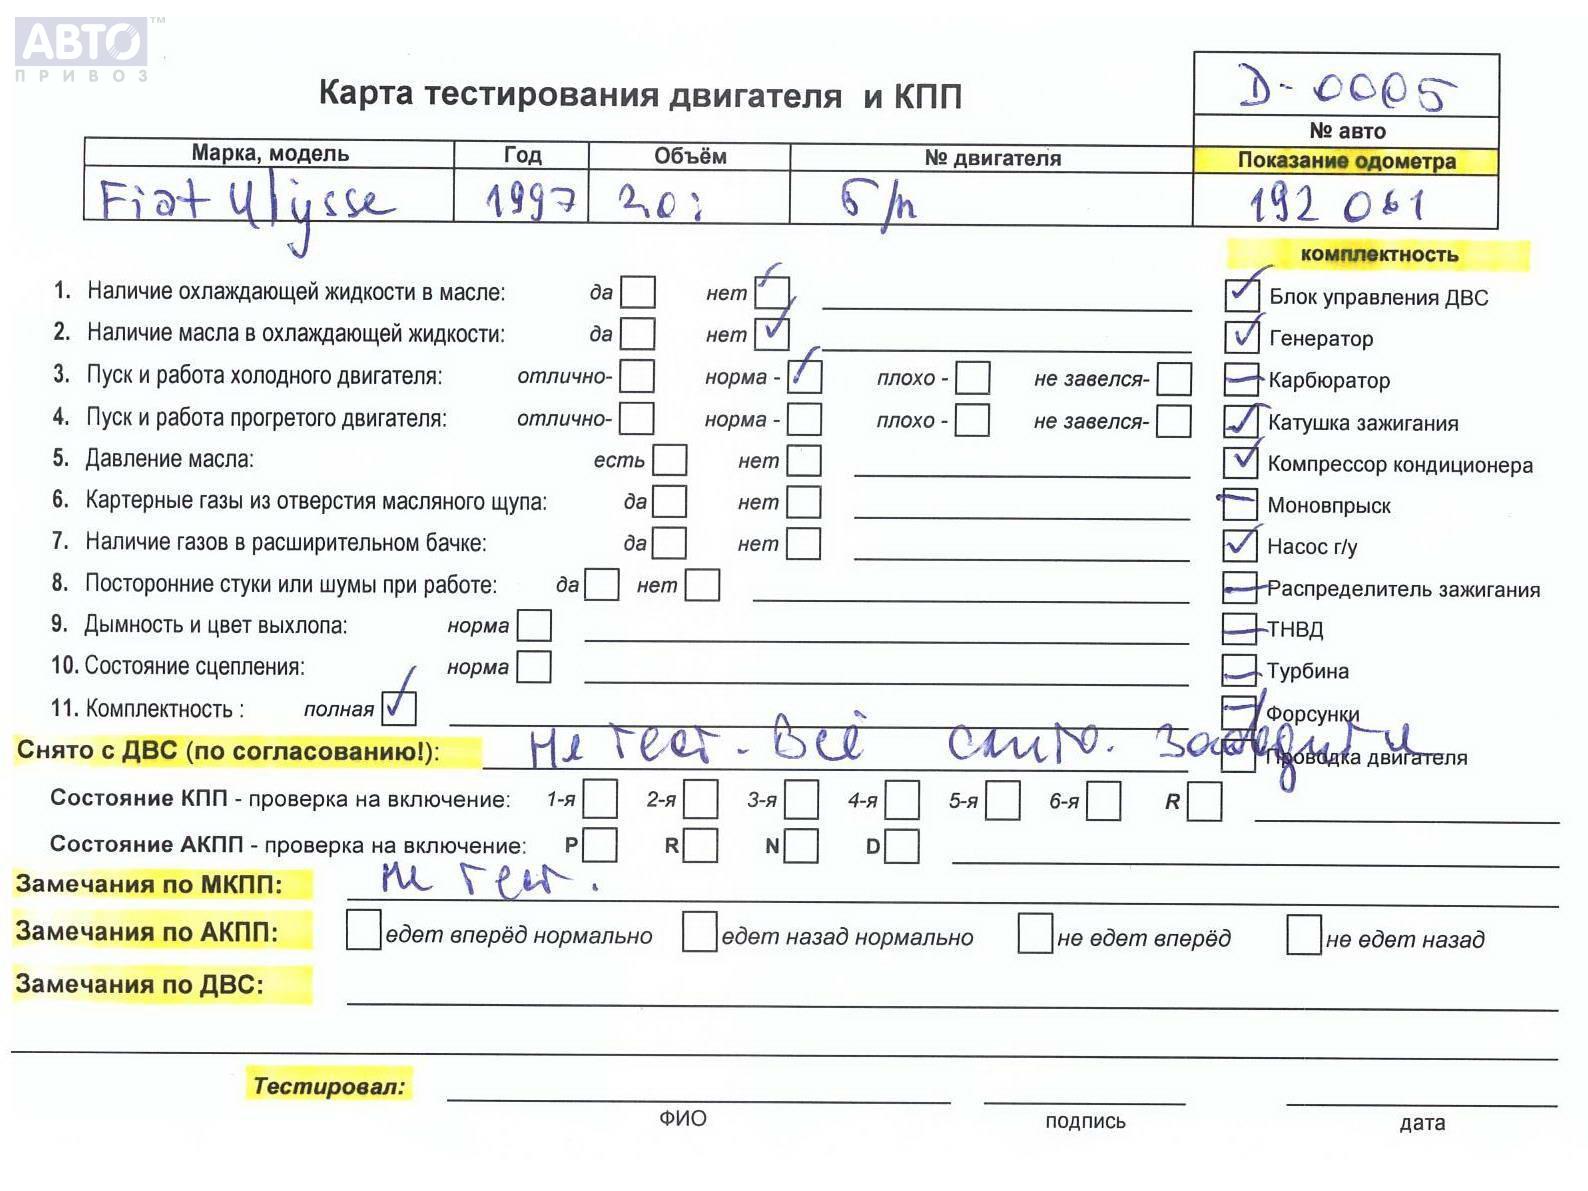 АВТО ™
ПРИВОЗ
Карта тестирования двигателя и КПП
D-0005
№ авто
Марка, модель Год Объём № двигателя Показание одометра
Fiat Ulysse 1997 2.0i б/н 192 061
комплектность
1. Наличие охлаждающей жидкости в масле: да нет
Блок управления ДВС
2. Наличие масла в охлаждающей жидкости: да нет
Генератор
3. Пуск и работа холодного двигателя: отлично- норма - плохо - не завелся-
Карбюратор
4. Пуск и работа прогретого двигателя: отлично- норма - плохо - не завелся-
Катушка зажигания
5. Давление масла: есть нет
Компрессор кондиционера
6. Картерные газы из отверстия масляного щупа: да нет
Моновпрыск
7. Наличие газов в расширительном бачке: да нет
Насос г/у
8. Посторонние стуки или шумы при работе: да нет
Распределитель зажигания
9. Дымность и цвет выхлопа: норма
ТНВД
10. Состояние сцепления: норма
Турбина
11. Комплектность : полная
Форсунки
Снято с ДВС (по согласованию!): Не тест. Всё слито.
Проводка двигателя
Состояние КПП - проверка на включение: 1-я 2-я 3-я 4-я 5-я 6-я R
Состояние АКПП - проверка на включение: P R N D
Замечания по МКПП: не тест.
Замечания по АКПП: едет вперёд нормально едет назад нормально не едет вперёд не едет назад
Замечания по ДВС:
Тестировал:
ФИО подпись дата